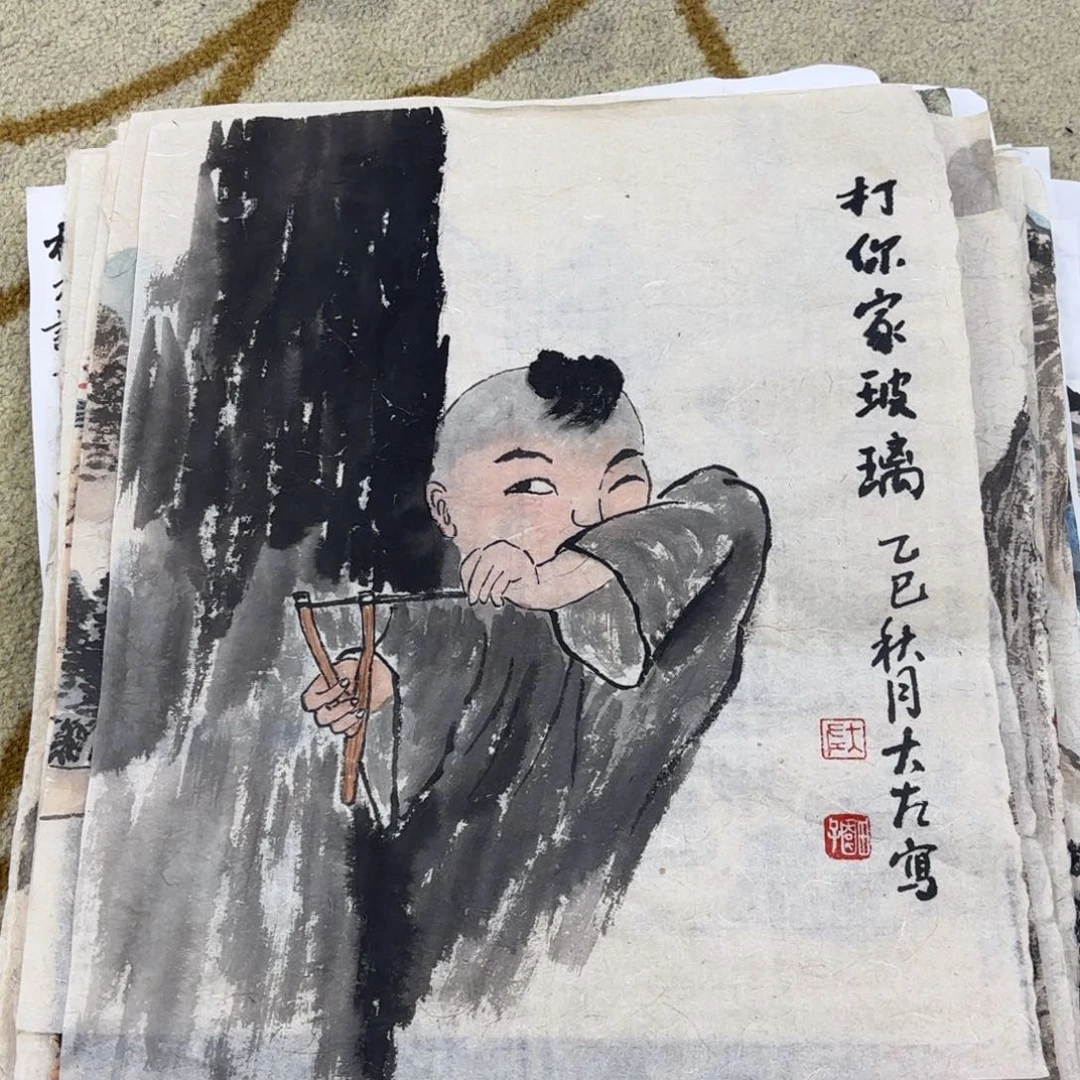 打你家玻璃
乙巳秋月大左寫